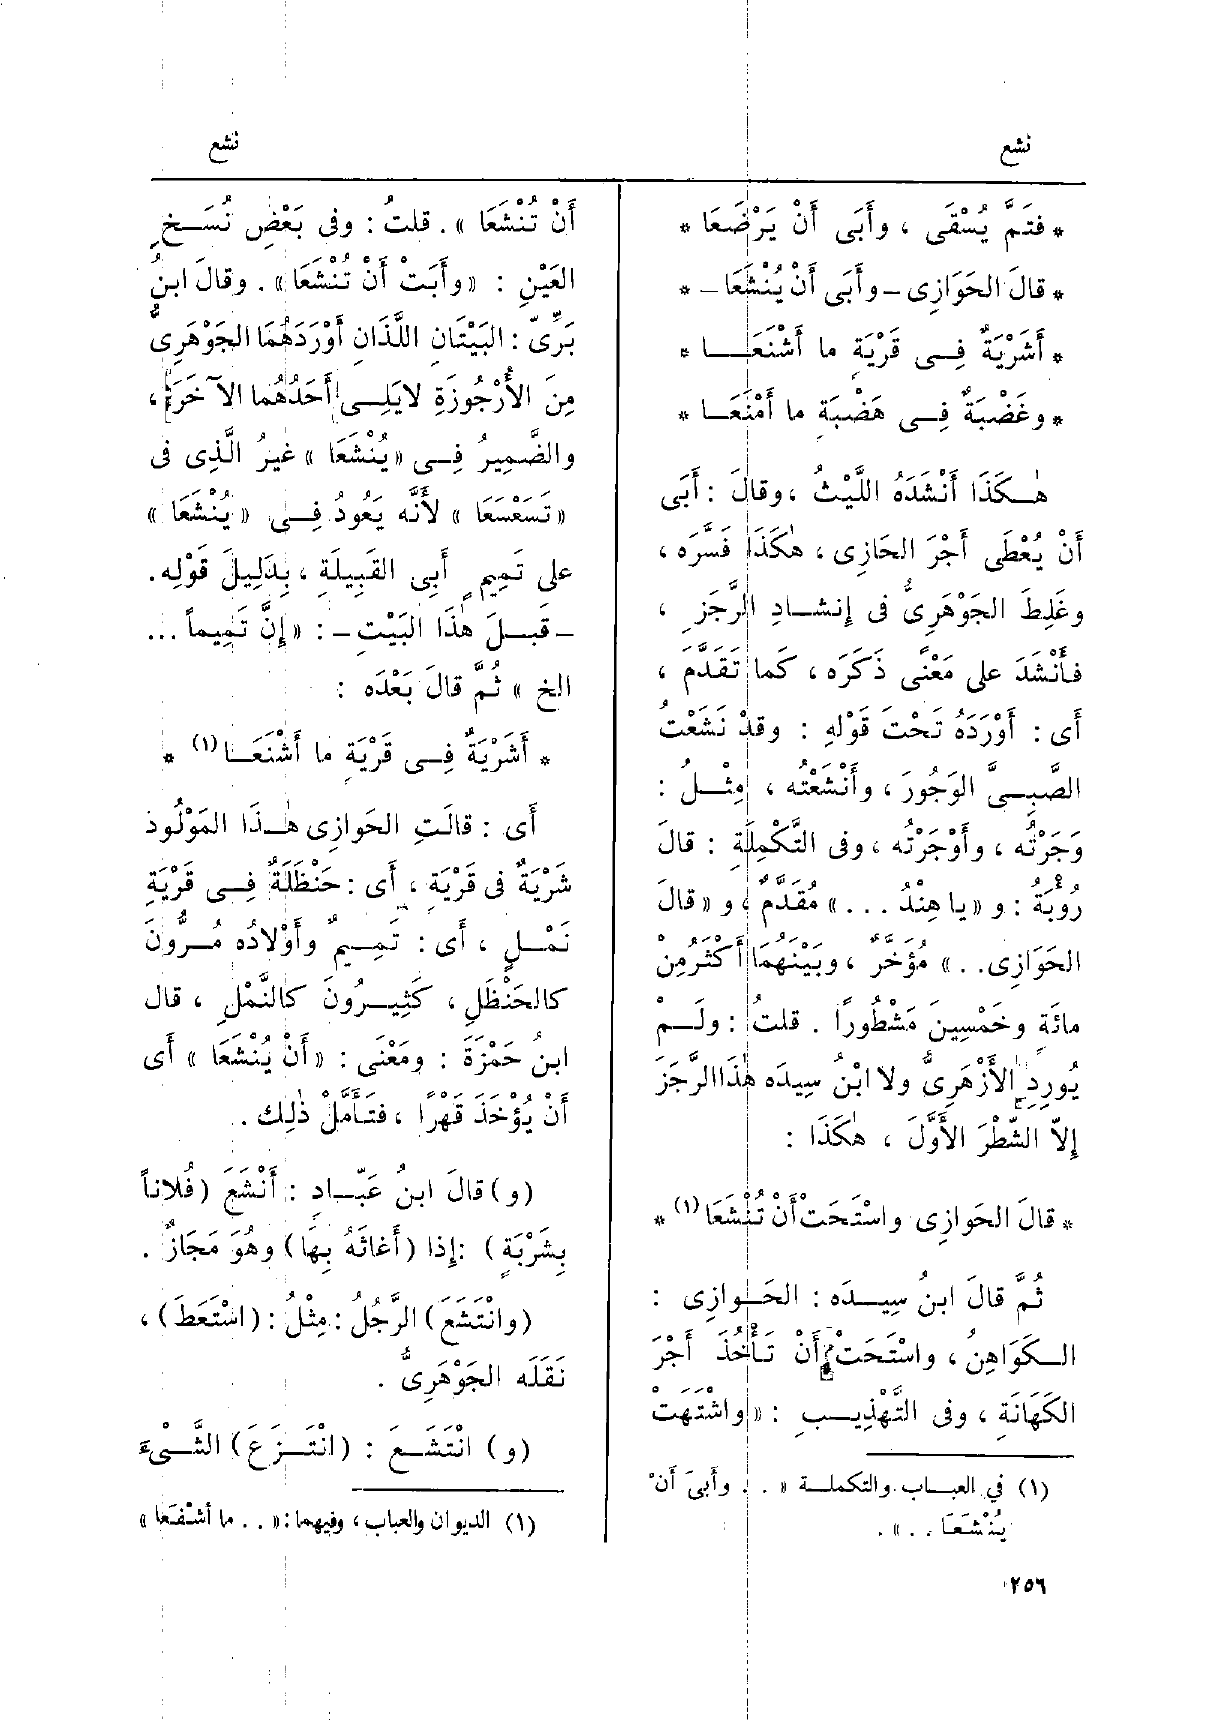 نشع
* فتَمَّ يُسْقَى ، وأَبَى أَنْ يَرْضَعَا *
* قالَ الحَوَازِى – وأَبَى أَنْ يُنْشَعَا – *
* أَشَرْيَةٌ فِى قَرْيَةٍ ما أَشْنَعَا *
* وغَضْبَةٌ فِى هَضْبَةٍ ما أَمْنَعَا *
هٰكَذَا أَنْشَدَه اللَّيْثُ ، وقالَ : أَبَى
أَنْ يُعْطَى أَجْرَ الحَازِى ، هٰكَذَا فَسَّرَه ،
وغَلِطَ الجَوْهَرِىُّ فى إِنشادِ الرَّجَزِ ،
فأَنْشَدَ على مَعْنًى ذَكَرَه ، كَما تَقَدَّمَ ،
أَى : أَوْرَدَهُ تَحْتَ قَوْلِهِ : وقدْ نَشَعْتُ
الصَّبِىَّ الوَجُورَ ، وأَنْشَعْتُه ، مِثْلُ :
وَجَرْتُه ، وأَوْجَرْتُه ، وفى التَّكْمِلَةِ : قالَ
رُؤْبَةُ : و «يا هِنْدُ ...» مُقَدَّمٌ ، و «قالَ
الحَوَازِى. . .» مُؤَخَّرٌ ، وبَيْنَهُمَا أَكْثَرُ مِنْ
مائَةٍ وخَمْسِينَ مَشْطُورًا . قلتُ : ولَمْ
يُورِدِ الأَزْهَرِىُّ ولا ابْنُ سِيدَه هٰذَا الرَّجَزَ
إِلاّ الشَّطْرَ الأَوَّلَ ، هٰكَذَا :
* قالَ الحَوازِى واسْتَحَتْ أَنْ تُنْشَعَا (١) *
ثُمَّ قالَ ابنُ سِيدَه : الحَوازِى :
الكَوَاهِنُ ، واسْتَحَتْ أَنْ تَأْخُذَ أَجْرَ
الكَهَانَةِ ، وفى التَّهْذِيبِ : «واشْتَهَتْ
(١) في العباب والتكملة « . . . وأَبَىَ أَنْ
يُنْشَعَا . . » .
٢٥٦
نشع
أَنْ تُنْشَعَا » . قلتُ : وفى بَعْضِ نُسَخِ
العَيْنِ : «وأَبَتْ أَنْ تُنْشَعَا» . وقالَ ابنُ
بَرِّىّ : البَيْتَانِ اللَّذَانِ أَوْرَدَهُمَا الجَوْهَرِىُّ
مِنَ الأُرْجُوزَةِ لايَلِى أَحَدُهُما الآخَرَ ،
والضَّمِيرُ فِى «يُنْشَعَا » غيرُ الَّذِى فى
«تَسَعْسَعَا » لأَنَّه يَعُودُ فِى « يُنْشَعَا »
على تَمِيمٍ أَبِى القَبِيلَةِ ، بدَلِيلِ قَوْلِه.
– قَبلَ هٰذَا البَيْتِ – : «إِنَّ تَمِيماً ...
الخ » ثُمَّ قالَ بَعْدَه :
* أَشَرْيَةٌ فِى قَرْيَةٍ ما أَشْنَعَا (١) *
أَى : قالَتِ الحَوازِى هٰذَا المَوْلُودُ
شَرْيَةٌ فى قَرْيَةٍ ، أَى : حَنْظَلَةٌ فِى قَرْيَةِ
نَمْلٍ ، أَى : تَمِيمٌ وأَوْلادُه مُرُّونَ
كالحَنْظَلِ ، كَثِيرُونَ كالنَّمْلِ ، قال
ابنُ حَمْزَةَ : ومَعْنَى : «أَنْ يُنْشَعَا » أَى
أَنْ يُؤْخَذَ قَهْرًا ، فتَأَمَّلْ ذٰلِك .
(و) قالَ ابنُ عَبّادٍ : أَنْشَعَ (فُلاناً
بِشَرْبَةٍ) : إِذا (أَغاثَهُ بِهَا) وهُوَ مَجَازٌ .
(وانْتَشَعَ) الرَّجُلُ : مِثْلُ : (اسْتَعَطَ) ،
نَقَلَه الجَوْهَرِىُّ .
(و) انْتَشَعَ : (انْتَزَعَ) الشَّىْءَ
(١) الديوان والعباب ، وفيهما : « . . ما أشْفَعَا »